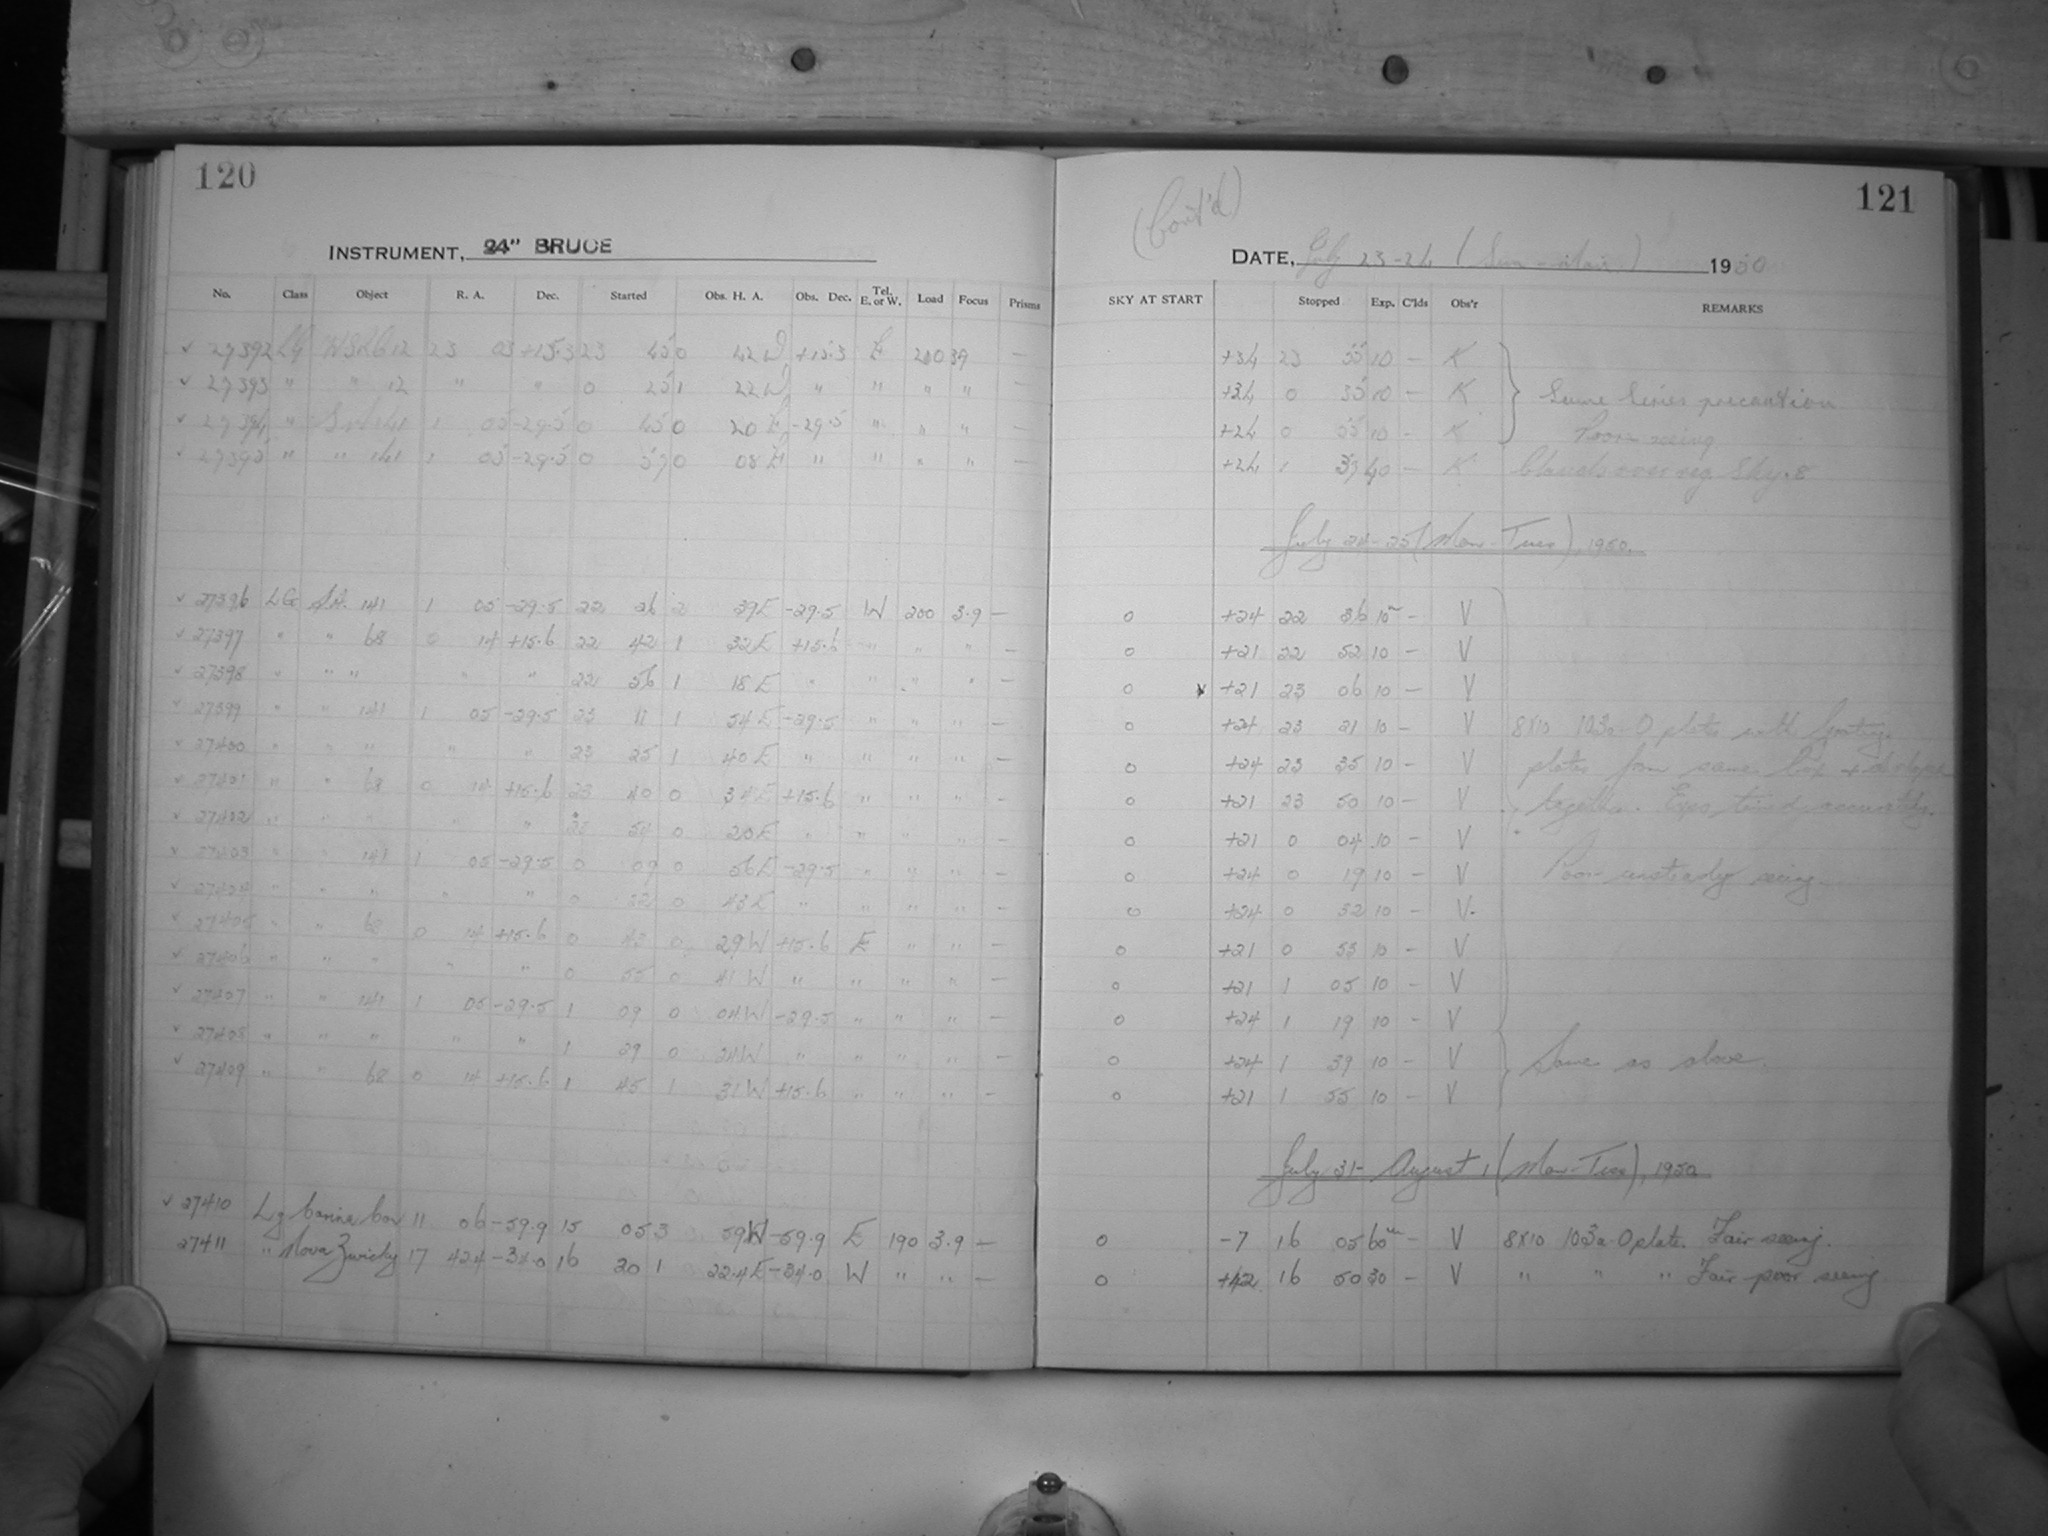 120
INSTRUMENT, 24" BRUCE
No. Class Object R. A. Dec. Started Obs. H. A. Obs. Dec. Tel. E. or W. Load Focus Prisms
27392 LG 12 23 03 +15.3 23 45 0 42 W +15.3 E 200 39 —
27393 " " 12 " " 0 25 1 22 W " " " " —
27394 " 141 1 05 -29.5 0 45 0 20 E -29.5 " " " —
27395 " " 141 1 05 -29.5 0 57 0 08 E " " " " —
27396 LG S.A. 141 1 05 -29.5 22 26 2 39 E -29.5 W 200 3.9 —
27397 " " 68 0 14 +15.6 22 42 1 32 E +15.6 " " " —
27398 " " " " " 22 56 1 18 E " " " " —
27399 " " 141 1 05 -29.5 23 11 1 54 E -29.5 " " " —
27400 " " " " " 23 25 1 40 E " " " " —
27401 " " 68 0 14 +15.6 23 40 0 34 E +15.6 " " " —
27402 " " " " " 23 54 0 20 E " " " " —
27403 " " 141 1 05 -29.5 0 09 0 56 E -29.5 " " " —
27404 " " " " " 0 22 0 43 E " " " " —
27405 " " 68 0 14 +15.6 0 43 0 29 W +15.6 E " " —
27406 " " " " " 0 55 0 41 W " " " " —
27407 " " 141 1 05 -29.5 1 09 0 04 W -29.5 " " " —
27408 " " " " " 1 29 0 24 W " " " " —
27409 " " 68 0 14 +15.6 1 45 1 31 W +15.6 " " " —
27410 Lg Carina Cor 11 06 -59.9 15 05 3 59 W -59.9 E 190 3.9 —
27411 " Nova Zwicky 17 42.4 -34.0 16 20 1 22.4 E -34.0 W " " —
(Cont'd)
121
DATE, July 23-24 (Sun-Mon) 1950
SKY AT START Stopped Exp. C'lds Obs'r REMARKS
+34 23 55 10 — K
+34 0 35 10 — K Same Series precaution
+24 0 55 10 — K Poor seeing
+24 1 37 40 — K Clouds over reg. Sky.8
July 24-25 (Mon-Tues), 1950.
0 +24 22 36 10m — V
0 +21 22 52 10 — V
0 +21 23 06 10 — V
0 +24 23 21 10 — V 8x10 103a-O plates with Grating.
0 +24 23 35 10 — V plates from same box + developed
0 +21 23 50 10 — V together. Exps timed accurately.
0 +21 0 04 10 — V
0 +24 0 19 10 — V Poor unsteady seeing.
0 +24 0 32 10 — V
0 +21 0 53 10 — V
0 +21 1 05 10 — V
0 +24 1 19 10 — V
0 +24 1 39 10 — V Same as above.
0 +21 1 55 10 — V
July 31- August 1 (Mon-Tues), 1950
0 -7 16 05 60m — V 8x10 103a-O plate. Fair seeing.
0 +42 16 50 30 — V " " " Fair-poor seeing